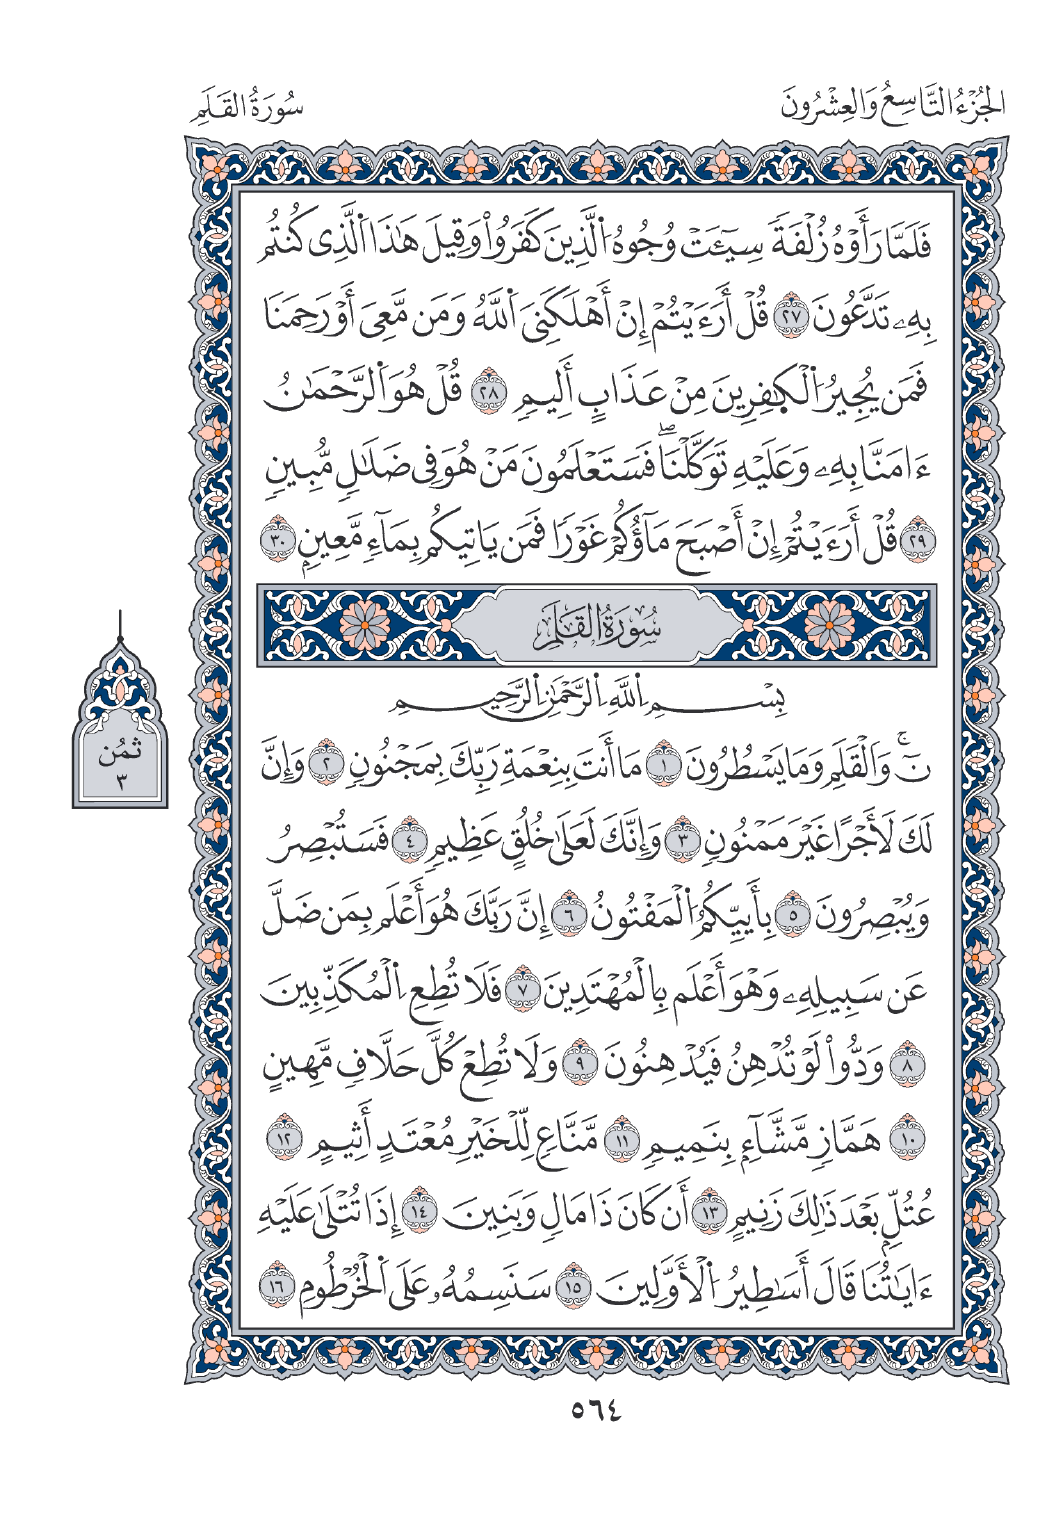 الجُزْءُ التَّاسِعُ وَالعِشْرُونَ
سُورَةُ القَلَمِ
فَلَمَّا رَأَوْهُ زُلْفَةٗ سِيٓـَٔتْ وُجُوهُ اُ۬لذِينَ كَفَرُواْ وَقِيلَ هَٰذَا اَ۬لذِى كُنتُم
بِهِۦ تَدَّعُونَ ٢٧ قُلْ أَرَءَيْتُمْ إِنْ أَهْلَكَنِىَ اَ۬للَّهُ وَمَن مَّعِىَ أَوْ رَحِمَنَا
فَمَن يُجِيرُ اُ۬لْكَٰفِرِينَ مِنْ عَذَابٍ أَلِيمٖ ٢٨ قُلْ هُوَ اَ۬لرَّحْمَٰنُ
ءَامَنَّا بِهِۦ وَعَلَيْهِ تَوَكَّلْنَاۖ فَسَتَعْلَمُونَ مَنْ هُوَ فِى ضَلَٰلٖ مُّبِينٖ
٢٩ قُلْ أَرَءَيْتُمْ إِنْ أَصْبَحَ مَآؤُكُمْ غَوْرٗا فَمَن يَاتِيكُم بِمَآءٖ مَّعِينِۢ ٣٠
سُورَةُ القَلَمِ
بِسْمِ اِ۬للَّهِ اِ۬لرَّحْمَٰنِ اِ۬لرَّحِيمِ
نٓۚ وَالْقَلَمِ وَمَا يَسْطُرُونَ ١ مَا أَنتَ بِنِعْمَةِ رَبِّكَ بِمَجْنُونٖ ٢ وَإِنَّ
لَكَ لَأَجْرًا غَيْرَ مَمْنُونٖ ٣ وَإِنَّكَ لَعَلَىٰ خُلُقٍ عَظِيمٖ ٤ فَسَتُبْصِرُ
وَيُبْصِرُونَ ٥ بِأَييِّكُمُ اُ۬لْمَفْتُونُ ٦ إِنَّ رَبَّكَ هُوَ أَعْلَم بِمَن ضَلَّ
عَن سَبِيلِهِۦ وَهْوَ أَعْلَم بِالْمُهْتَدِينَ ٧ فَلَا تُطِعِ اِ۬لْمُكَذِّبِينَ
٨ وَدُّواْ لَوْ تُدْهِنُ فَيُدْهِنُونَ ٩ وَلَا تُطِعْ كُلَّ حَلَّافٖ مَّهِينٍ
١٠ هَمَّازٖ مَّشَّآءِۭ بِنَمِيمٖ ١١ مَّنَّاعٖ لِّلْخَيْرِ مُعْتَدٍ أَثِيمٍ ١٢
عُتُلِّۭ بَعْدَ ذَٰلِكَ زَنِيمٍ ١٣ أَن كَانَ ذَا مَالٖ وَبَنِينَ ١٤ إِذَا تُتْلَىٰ عَلَيْهِ
ءَايَٰتُنَا قَالَ أَسَٰطِيرُ اُ۬لْأَوَّلِينَ ١٥ سَنَسِمُهُۥ عَلَى اَ۬لْخُرْطُومِ ١٦
ثُمُن
٣
٥٦٤